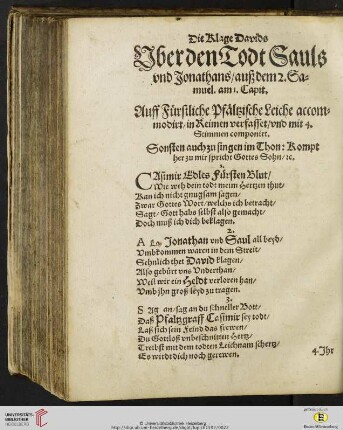 Die Klage Davids
Vber den Todt Sauls
vnd Jonathans / auß dem 2. Sa-
muel. am 1. Capit.
Auff Fürstliche Pfältzische Leiche accom-
modirt / in Reimen verfasset / vnd mit 4.
Stimmen componirt.
Sonsten auch zu singen im Thon: Kompt
her zu mir spricht Gottes Sohn / ꝛc.
1.
CAsimir Edles Fürsten Blut /
Wie weh dein todt meim hertzen thut /
Kan ich nicht gnugsam sagen /
Zwar Gottes Wort / welchs ich betracht /
Sagt / Gott habs selbst also gemacht /
Doch muß ich dich beklagen.
2.
Als Jonathan vnd Saul all beyd /
Vmbkommen waren in dem Streit /
Sehnlich thet David klagen /
Also gebürt vns Vnderthan /
Weil wir ein Heldt verloren han /
Vmb jhn groß leyd zu tragen.
3.
SAg an / sag an du schneller Bott /
Daß Pfaltzgraff Casimir sey todt /
Laß sich sein Feind das frewen /
Du Gottloß vnbeschnitten Hertz /
Treibst mit dem todten Leichnam schertz /
Es wirdt dich noch gerewen.
4. Ihr
UNIVERSITÄTS-
BIBLIOTHEK
HEIDELBERG
© Universitätsbibliothek Heidelberg